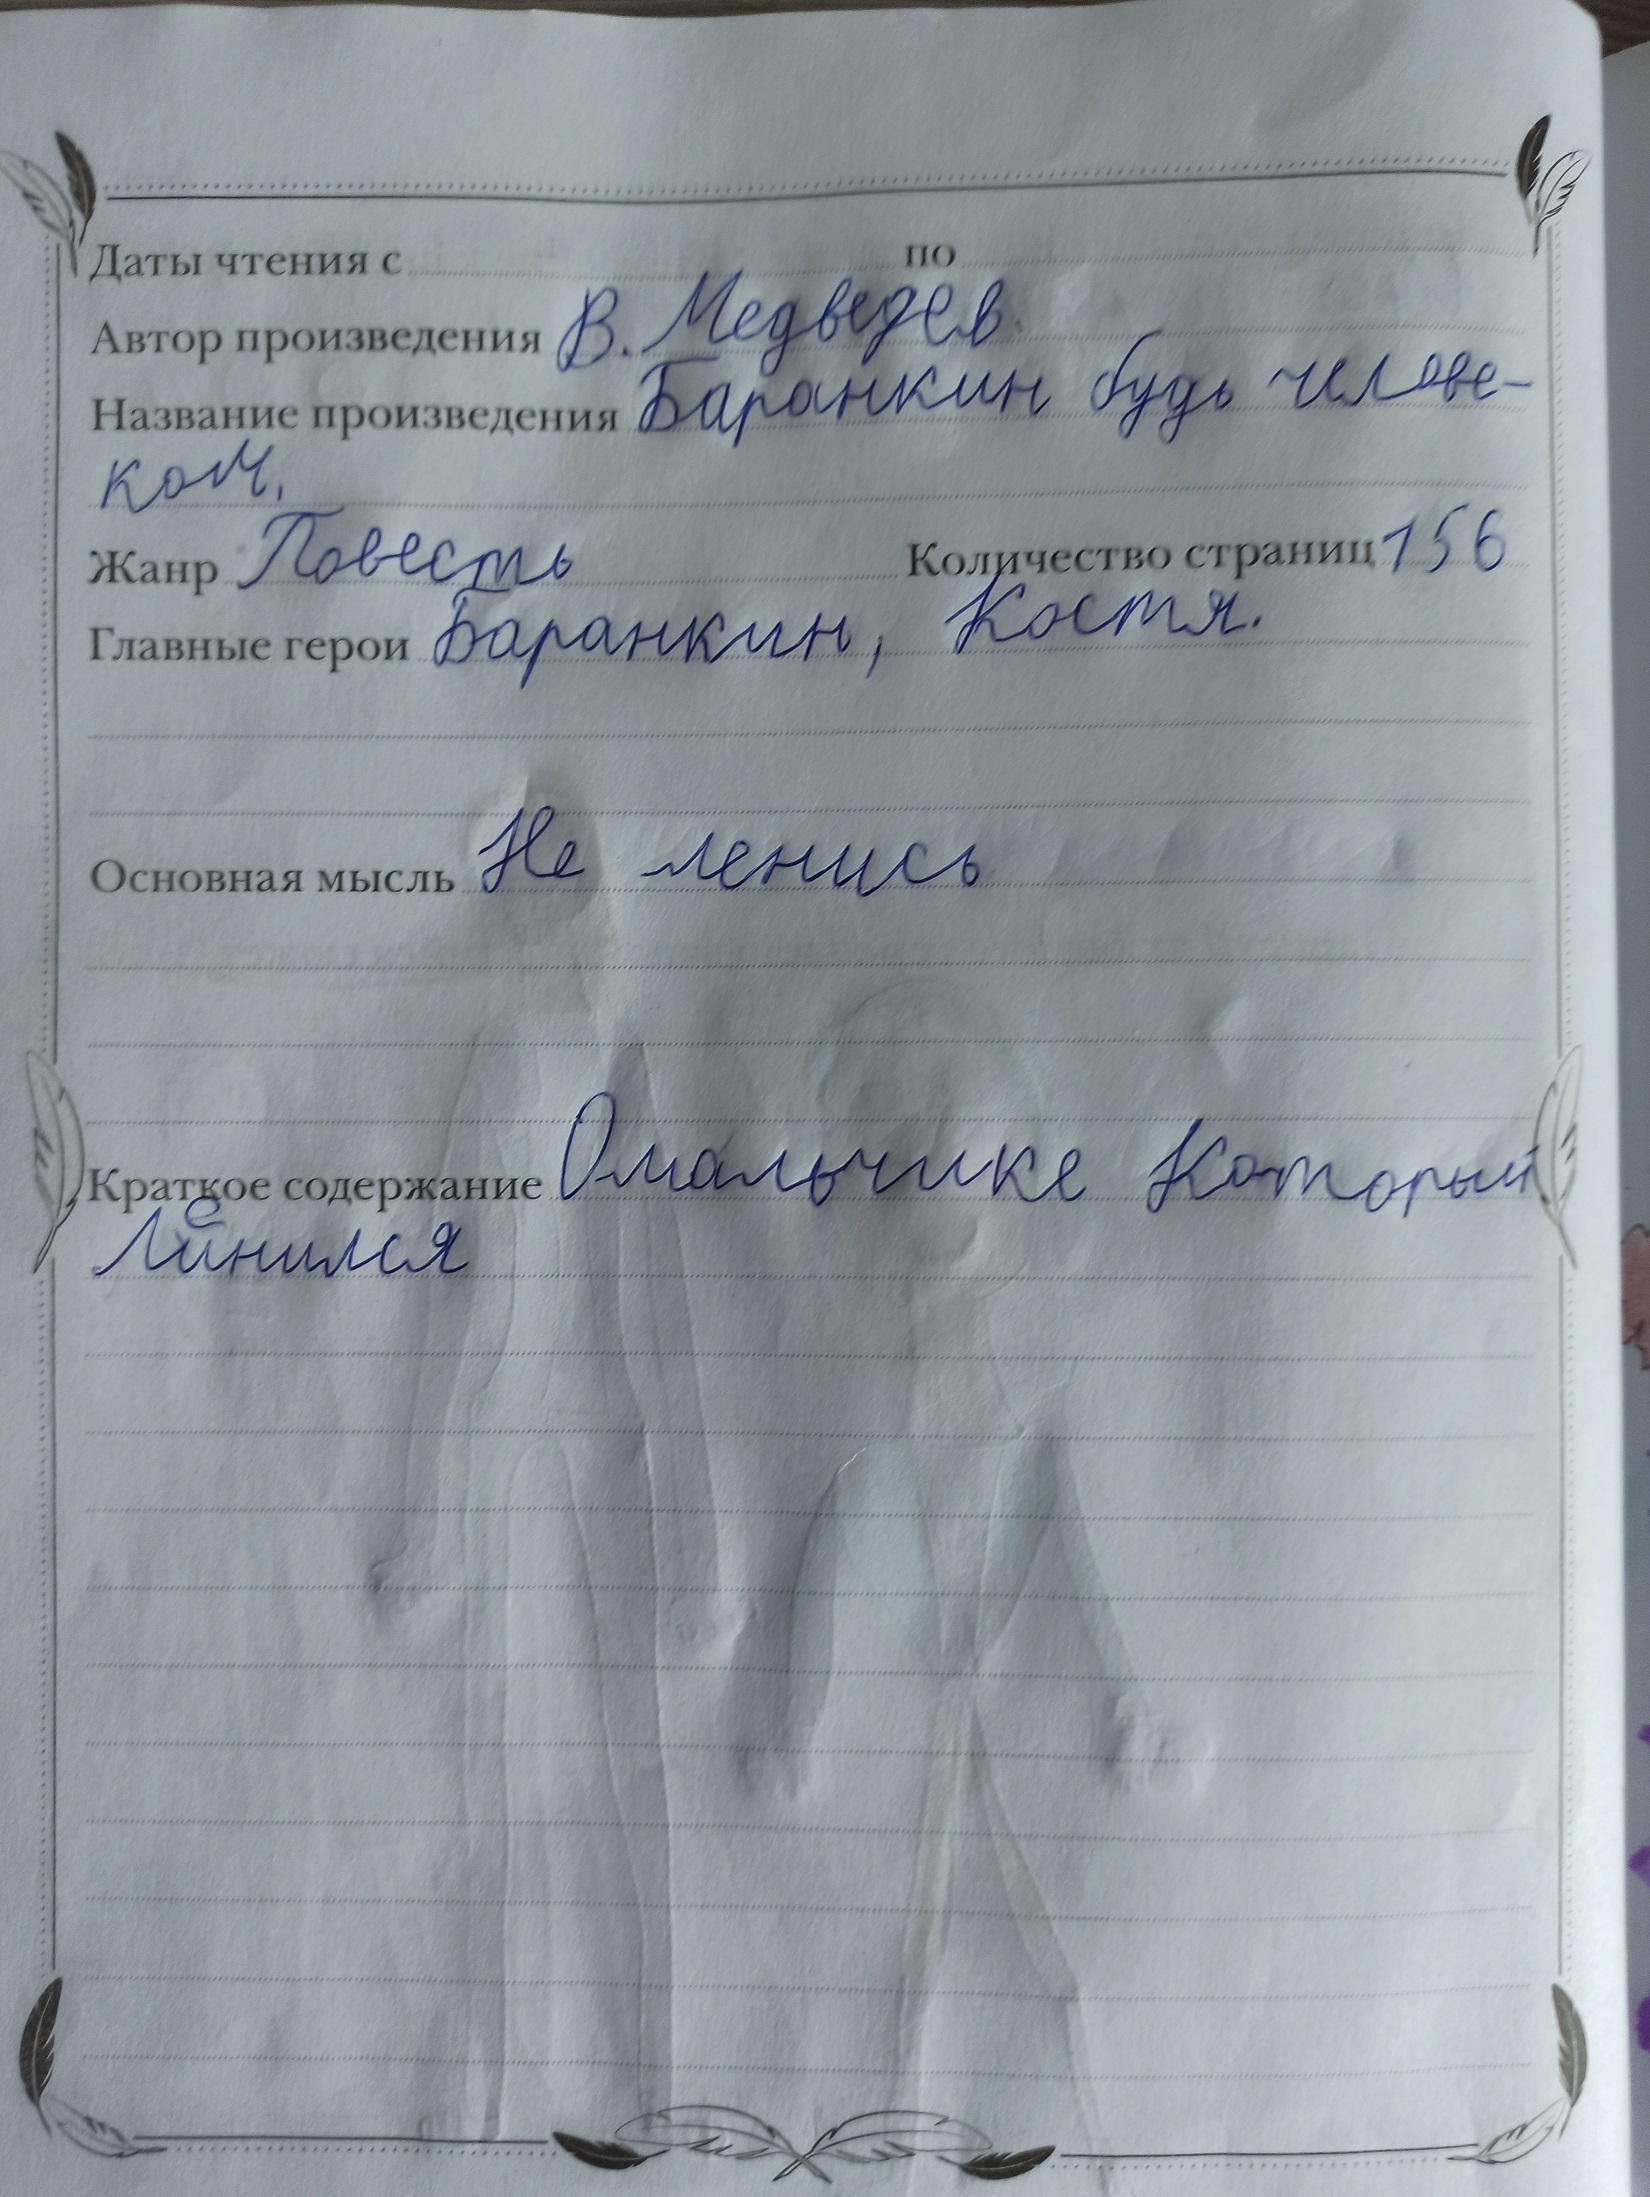 Даты чтения с по
Автор произведения В. Медведев
Название произведения Баранкин будь челове-
ком.
Жанр Повесть Количество страниц 156
Главные герои Баранкин, Костя.
Основная мысль Не ленись
Краткое содержание О мальчике Который
Ленился